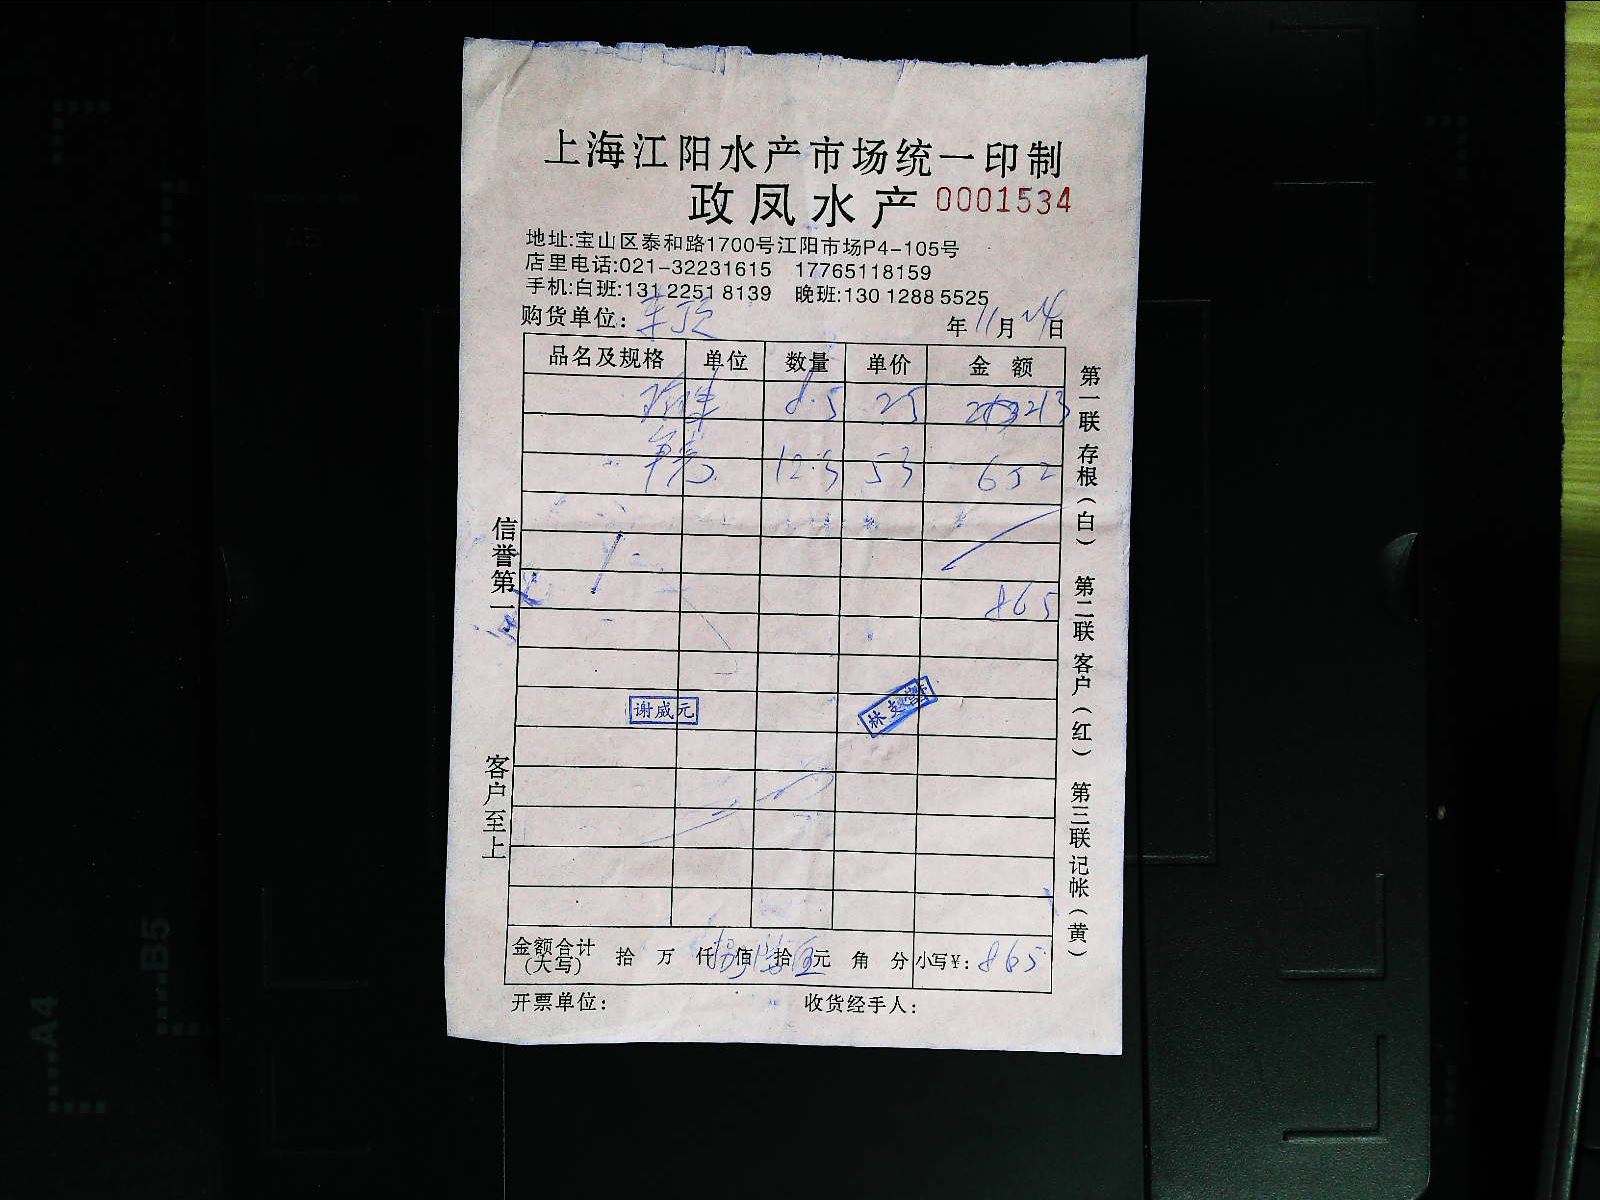 上海江阳水产市场统一印制
政凤水产 0001534
地址:宝山区泰和路1700号江阳市场P4-105号
店里电话:021-32231615 17765118159
手机:白班:131 2251 8139 晚班:130 1288 5525
购货单位: 年 11 月 24 日
品名及规格 单位 数量 单价 金额
8.5 25 213
12.3 53 652
865
谢威元
金额合计(大写) 拾 万 仟 捌 佰 陆 拾 伍 元 角 分 小写¥: 865
开票单位: 收货经手人:
信誉第一
客户至上
第一联 存根(白) 第二联 客户(红) 第三联 记帐(黄)
A4
B5